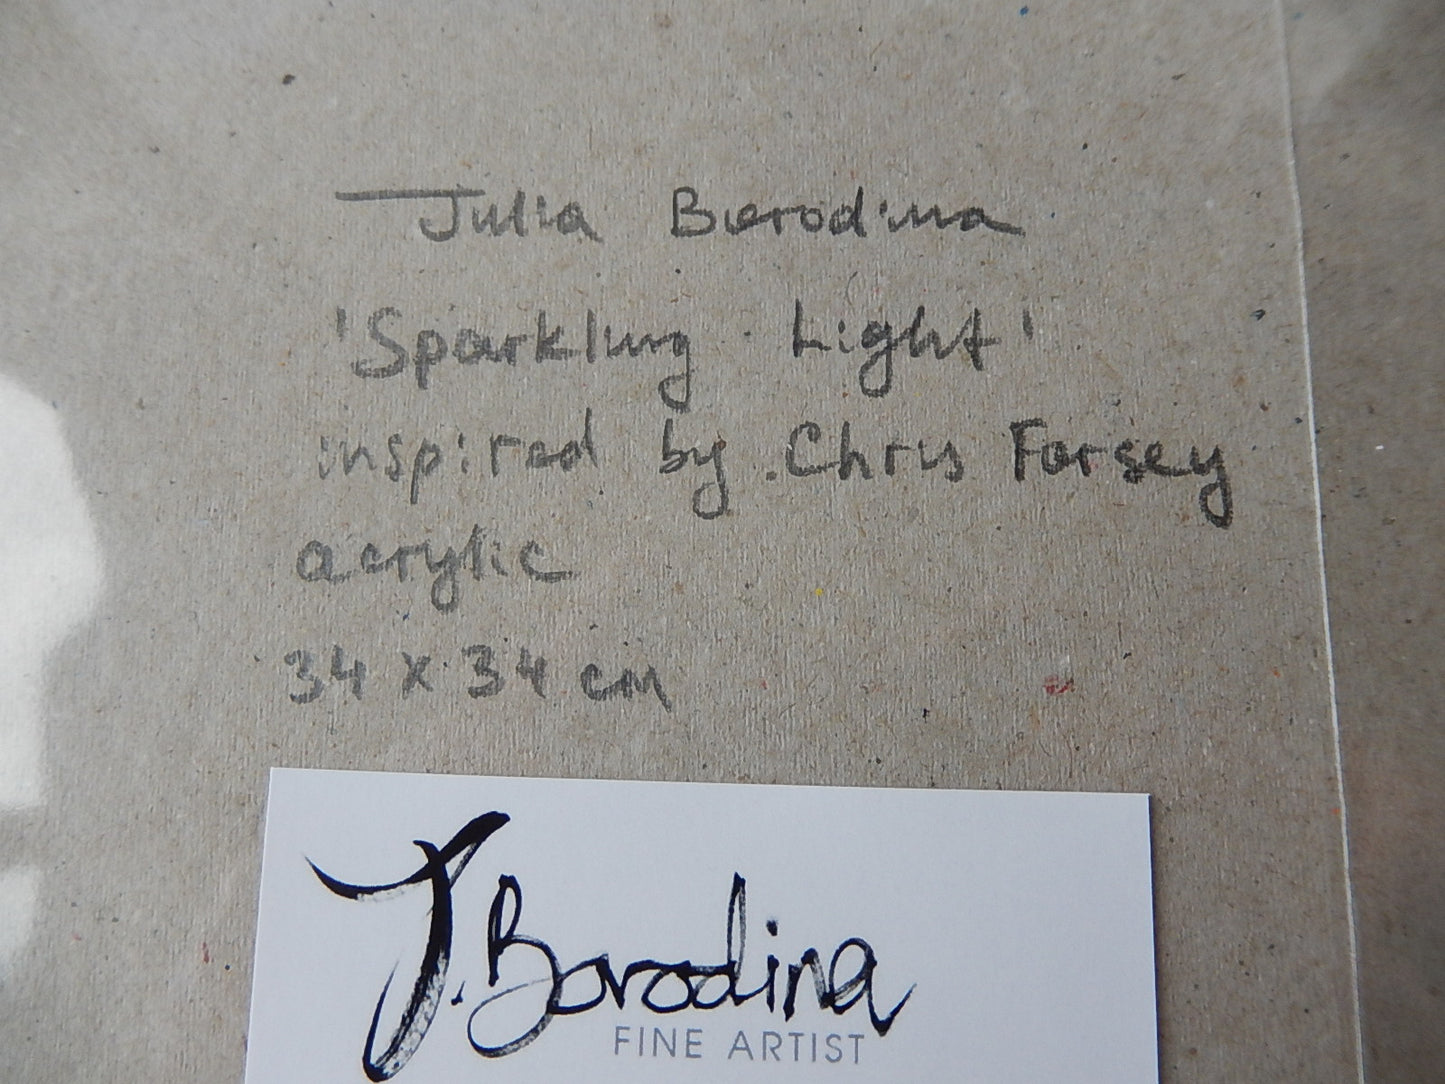 Julia Borodina
'Sparkling Light'
inspired by Chris Forsey
acrylic
34 x 34 cm
J. Borodina
FINE ARTIST